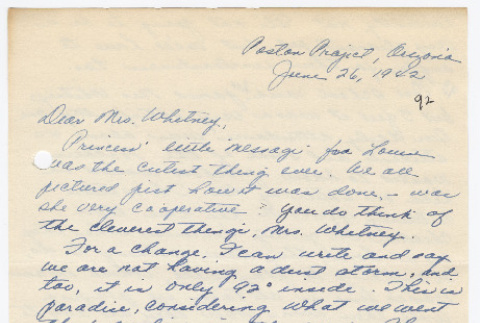 Poston Project, Arizona
June 26, 1942
92
Dear Mrs. Whitney,
Princess' little message for Louise
was the cutest thing ever. We all
pictured just how it was done, – was
she very cooperative? You do think of
the cleverest things, Mrs. Whitney.
For a change, I can write and say
we are not having a dust storm, and
too, it is only 92° inside. This is
paradise, considering what we went